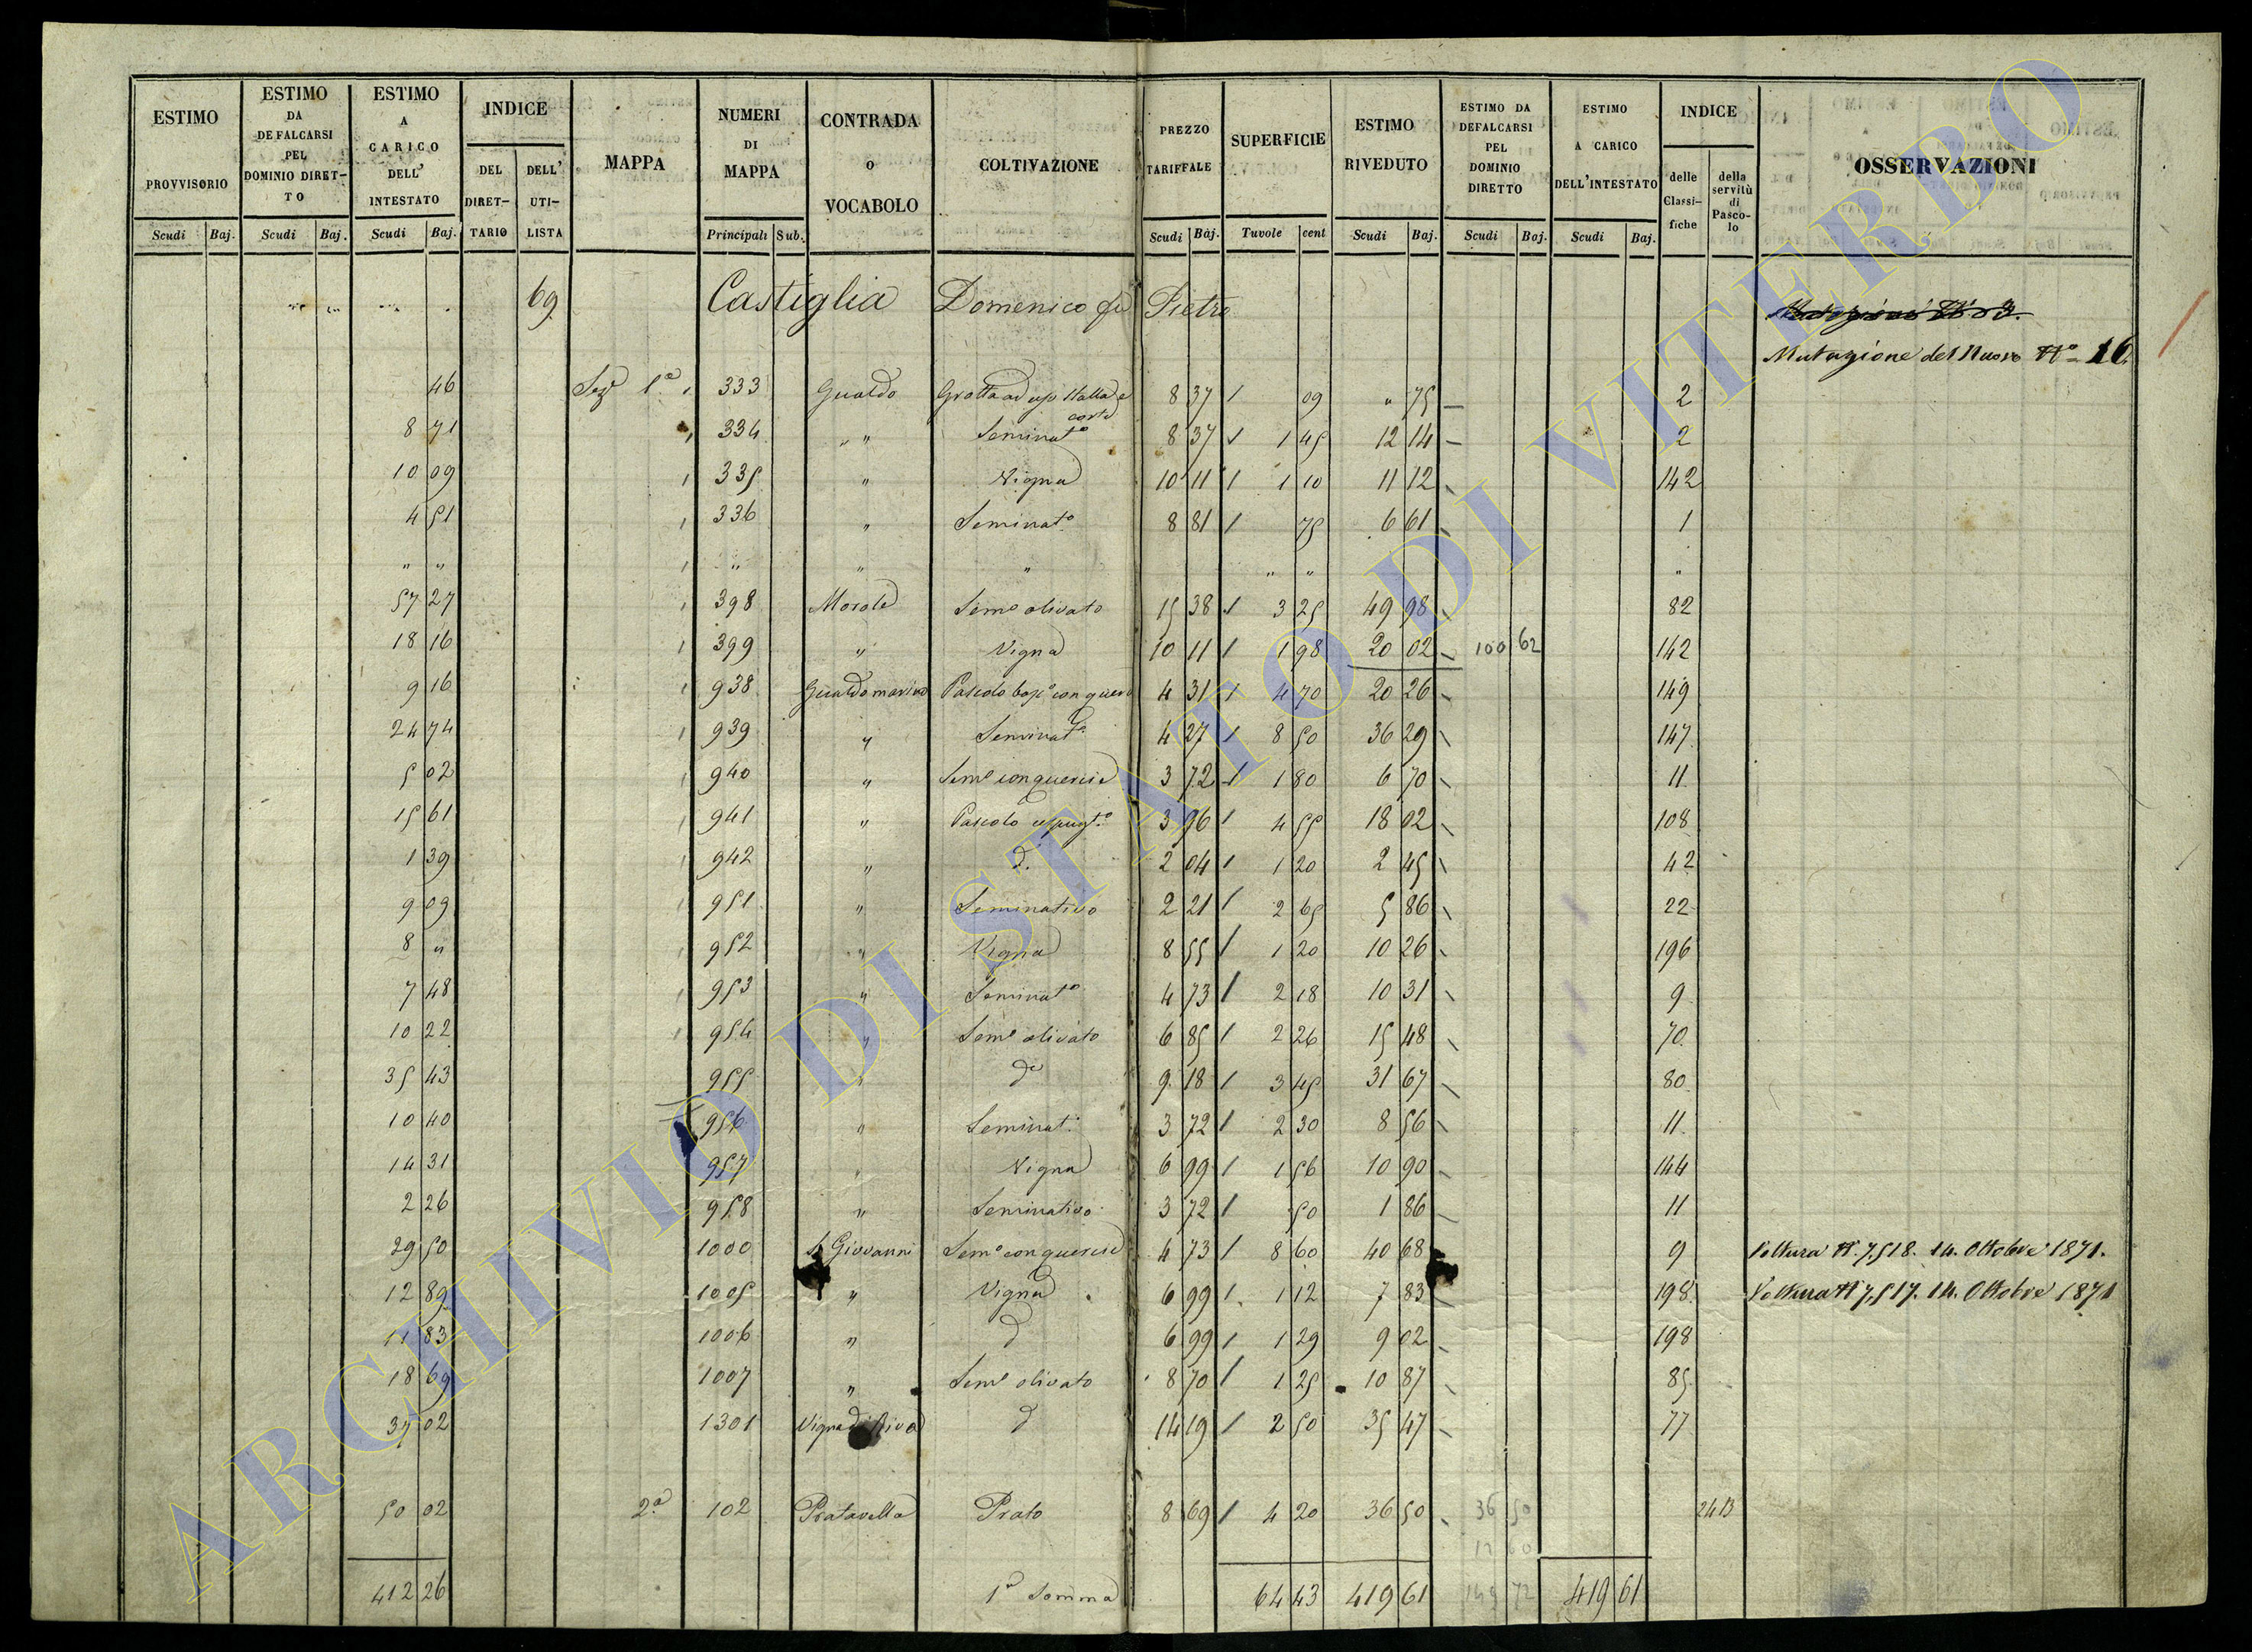 ESTIMO PROVVISORIO | ESTIMO DA DEFALCARSI PEL DOMINIO DIRETTO | ESTIMO A CARICO DELL' INTESTATO | INDICE | MAPPA | NUMERI DI MAPPA | CONTRADA O VOCABOLO | COLTIVAZIONE | PREZZO TARIFFALE | SUPERFICIE | ESTIMO RIVEDUTO | ESTIMO DA DEFALCARSI PEL DOMINIO DIRETTO | ESTIMO A CARICO DELL'INTESTATO | INDICE | OSSERVAZIONI
DEL DIRETTARIO | DELL' UTILISTA | delle Classifiche | della servitù di Pascolo
Scudi | Baj. | Scudi | Baj. | Scudi | Baj. | Principali | Sub. | Scudi | Baj. | Tavole | cent | Scudi | Baj. | Scudi | Baj. | Scudi | Baj.
69 Castiglia Domenico fu Pietro
Mutazione del Nuovo N° 16.
46 Sez.e 1.a 333 Gualdo Grotta ad uso Stalla e corte 8 37 09 " 75 2
8 71 334 " " Seminat.o 8 37 1 45 12 14 2
10 09 335 " Vigna 10 11 1 10 11 12 142
4 51 336 " Seminat.o 8 81 75 6 61 1
" " " " " " "
57 27 398 Morole Sem.o olivato 15 38 3 25 49 98 82
18 16 399 " Vigna 10 11 1 98 20 02 100 62 142
9 16 938 Gualdo Pascolo 4 31 4 70 20 26 149
24 74 939 " Seminat.o 4 27 8 50 36 29 147
5 02 940 " Sem.o con quercie 3 72 1 80 6 70 11
15 61 941 " Pascolo cespugt.o 3 96 4 55 18 02 108
1 39 942 " d.o 2 04 1 20 2 45 42
9 09 951 " Seminativo 2 21 2 65 5 86 22
8 " 952 " Vigna 8 55 1 20 10 26 196
7 48 953 " Seminat.o 4 73 2 18 10 31 9
10 22 954 " Sem.o olivato 6 85 2 26 15 48 70
35 43 955 " d.o 9 18 3 45 31 67 80
10 40 956 " Seminat. 3 72 2 30 8 56 11
14 31 957 " Vigna 6 99 1 56 10 90 144
2 26 958 " Seminativo 3 72 50 1 86 11
29 50 1000 S. Giovanni Sem.o con quercie 4 73 8 60 40 68 9 Voltura N. 7518. 14. Ottobre 1871.
12 89 1005 " Vigna 6 99 1 12 7 83 198 Voltura N 7517. 14. Ottobre 1871
11 83 1006 " d 6 99 1 29 9 02 198
18 69 1007 " Sem.o olivato 8 70 1 25 10 87 85
37 02 1301 Vigna di Riva d 14 19 2 50 35 47 77
50 02 2.a 102 Pratarella Prato 8 69 4 20 36 50 36 50 2413
412 26 1.a Somma 64 43 419 61 419 61
ARCHIVIO DI STATO DI VITERBO